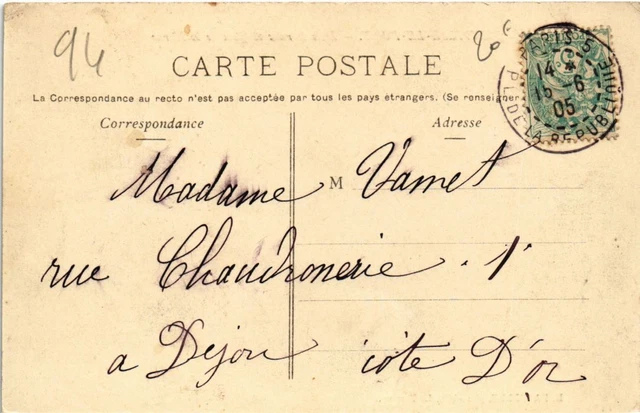 94
20 c
PARIS 5
14 *
15 - 6
05
PL. DE LA REPUBLIQUE
CARTE POSTALE
La Correspondance au recto n'est pas acceptée par tous les pays étrangers. (Se renseigner
Correspondance
Adresse
Madame M Vamet
rue Chaudronerie . 1
a Dijon côte D'or